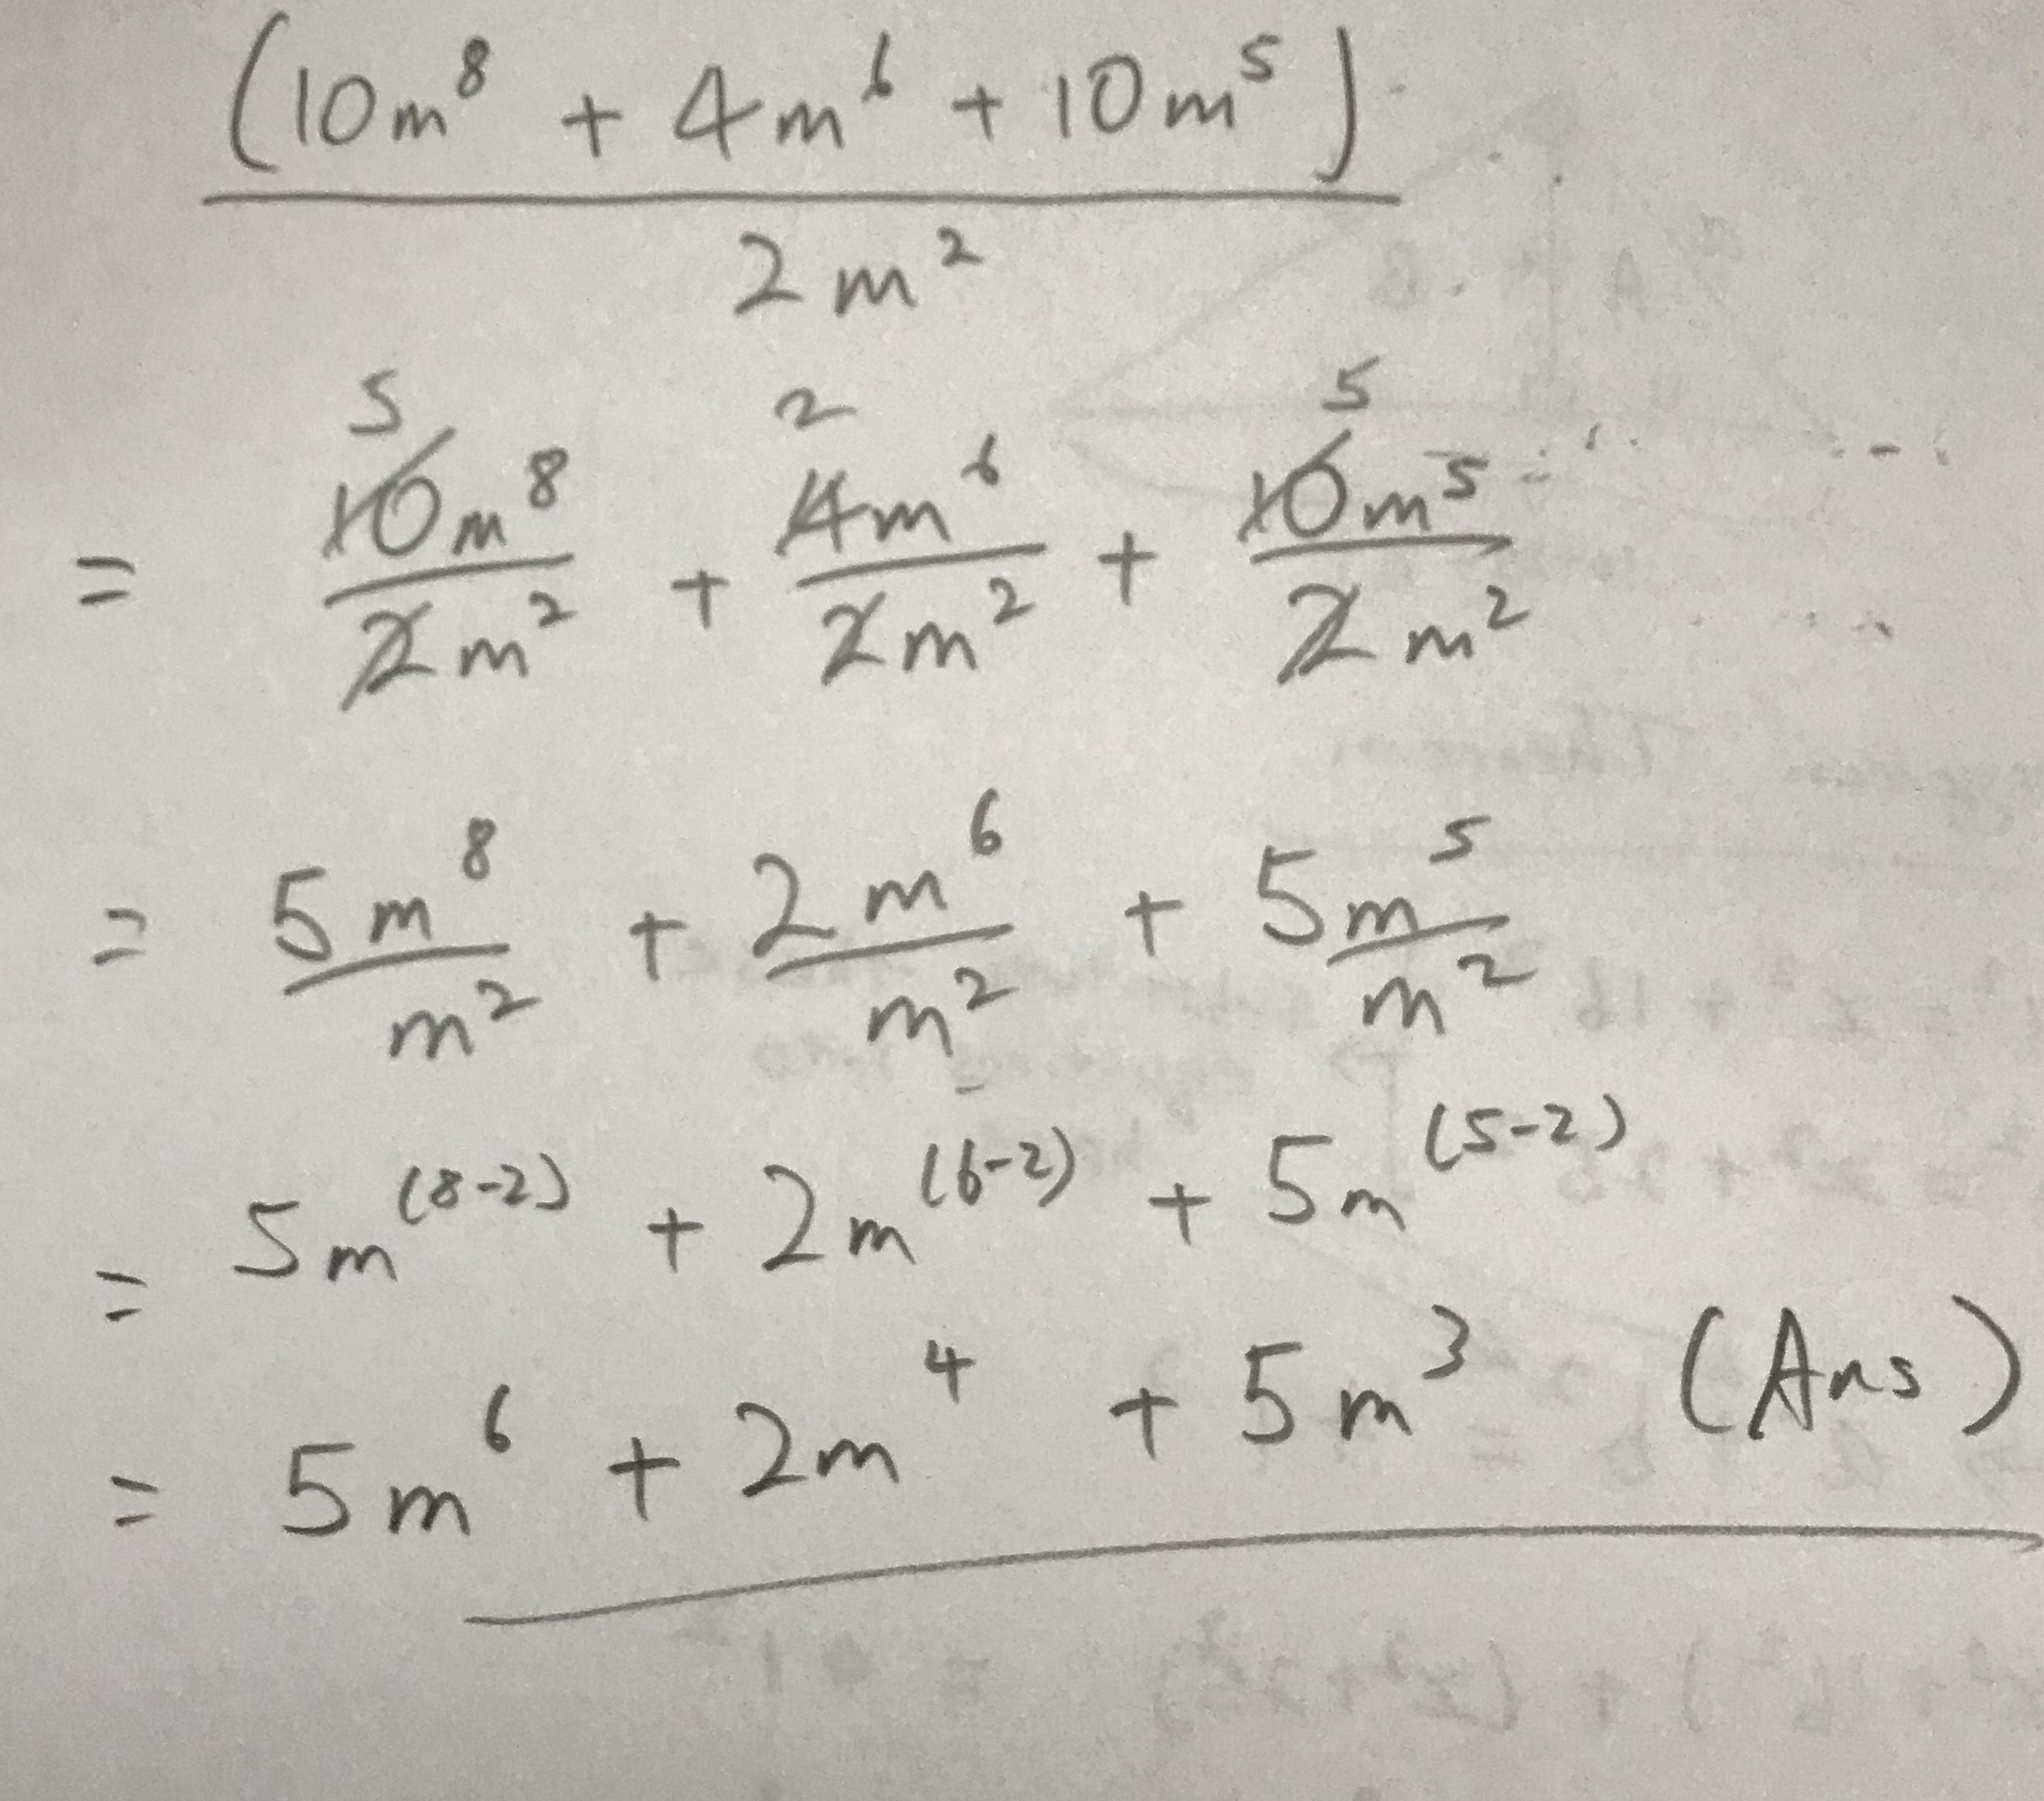 (10m⁸ + 4m⁶ + 10m⁵)
2m²
5 2 5
= 10m⁸/2m² + 4m⁶/2m² + 10m⁵/2m²
= 5m⁸/m² + 2m⁶/m² + 5m⁵/m²
= 5m⁽⁸⁻²⁾ + 2m⁽⁶⁻²⁾ + 5m⁽⁵⁻²⁾
= 5m⁶ + 2m⁴ + 5m³ (Ans)